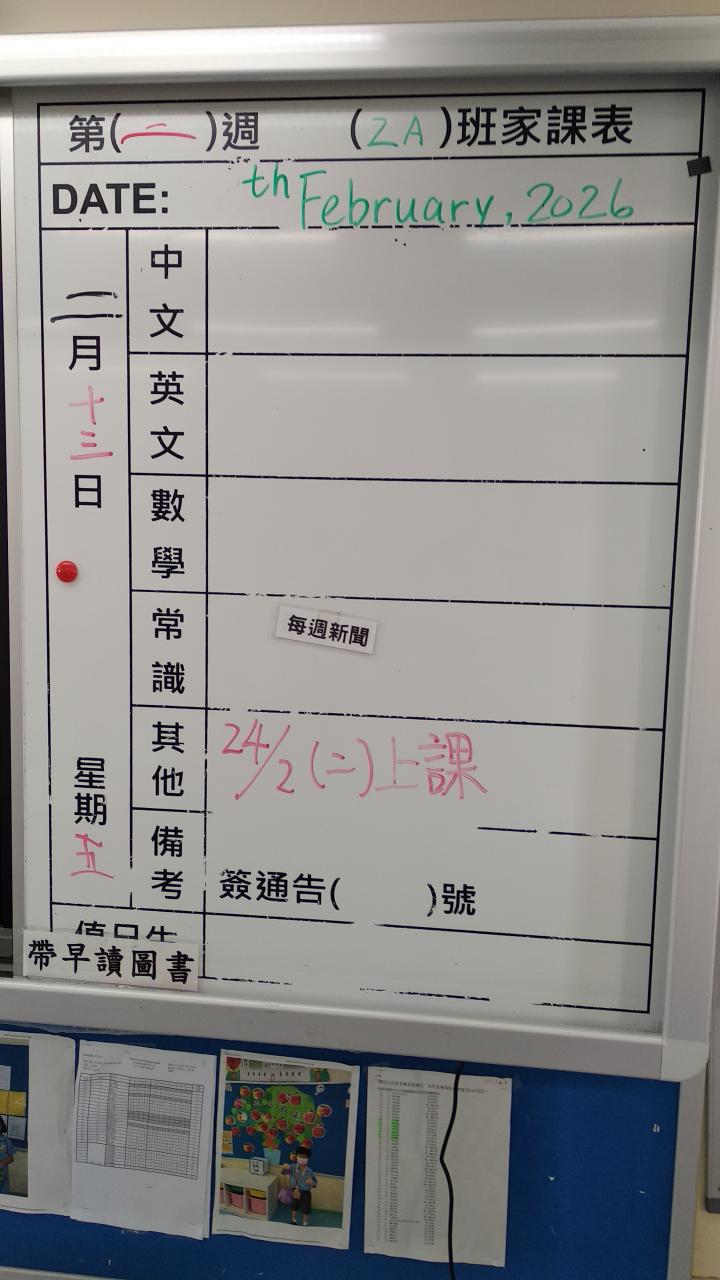 第(二)週 (2A)班家課表
DATE: th February, 2026
二月十三日
星期五
中文
英文
數學
常識
每週新聞
其他
24/2(二)上課
備考
簽通告( )號
值日生
帶早讀圖書